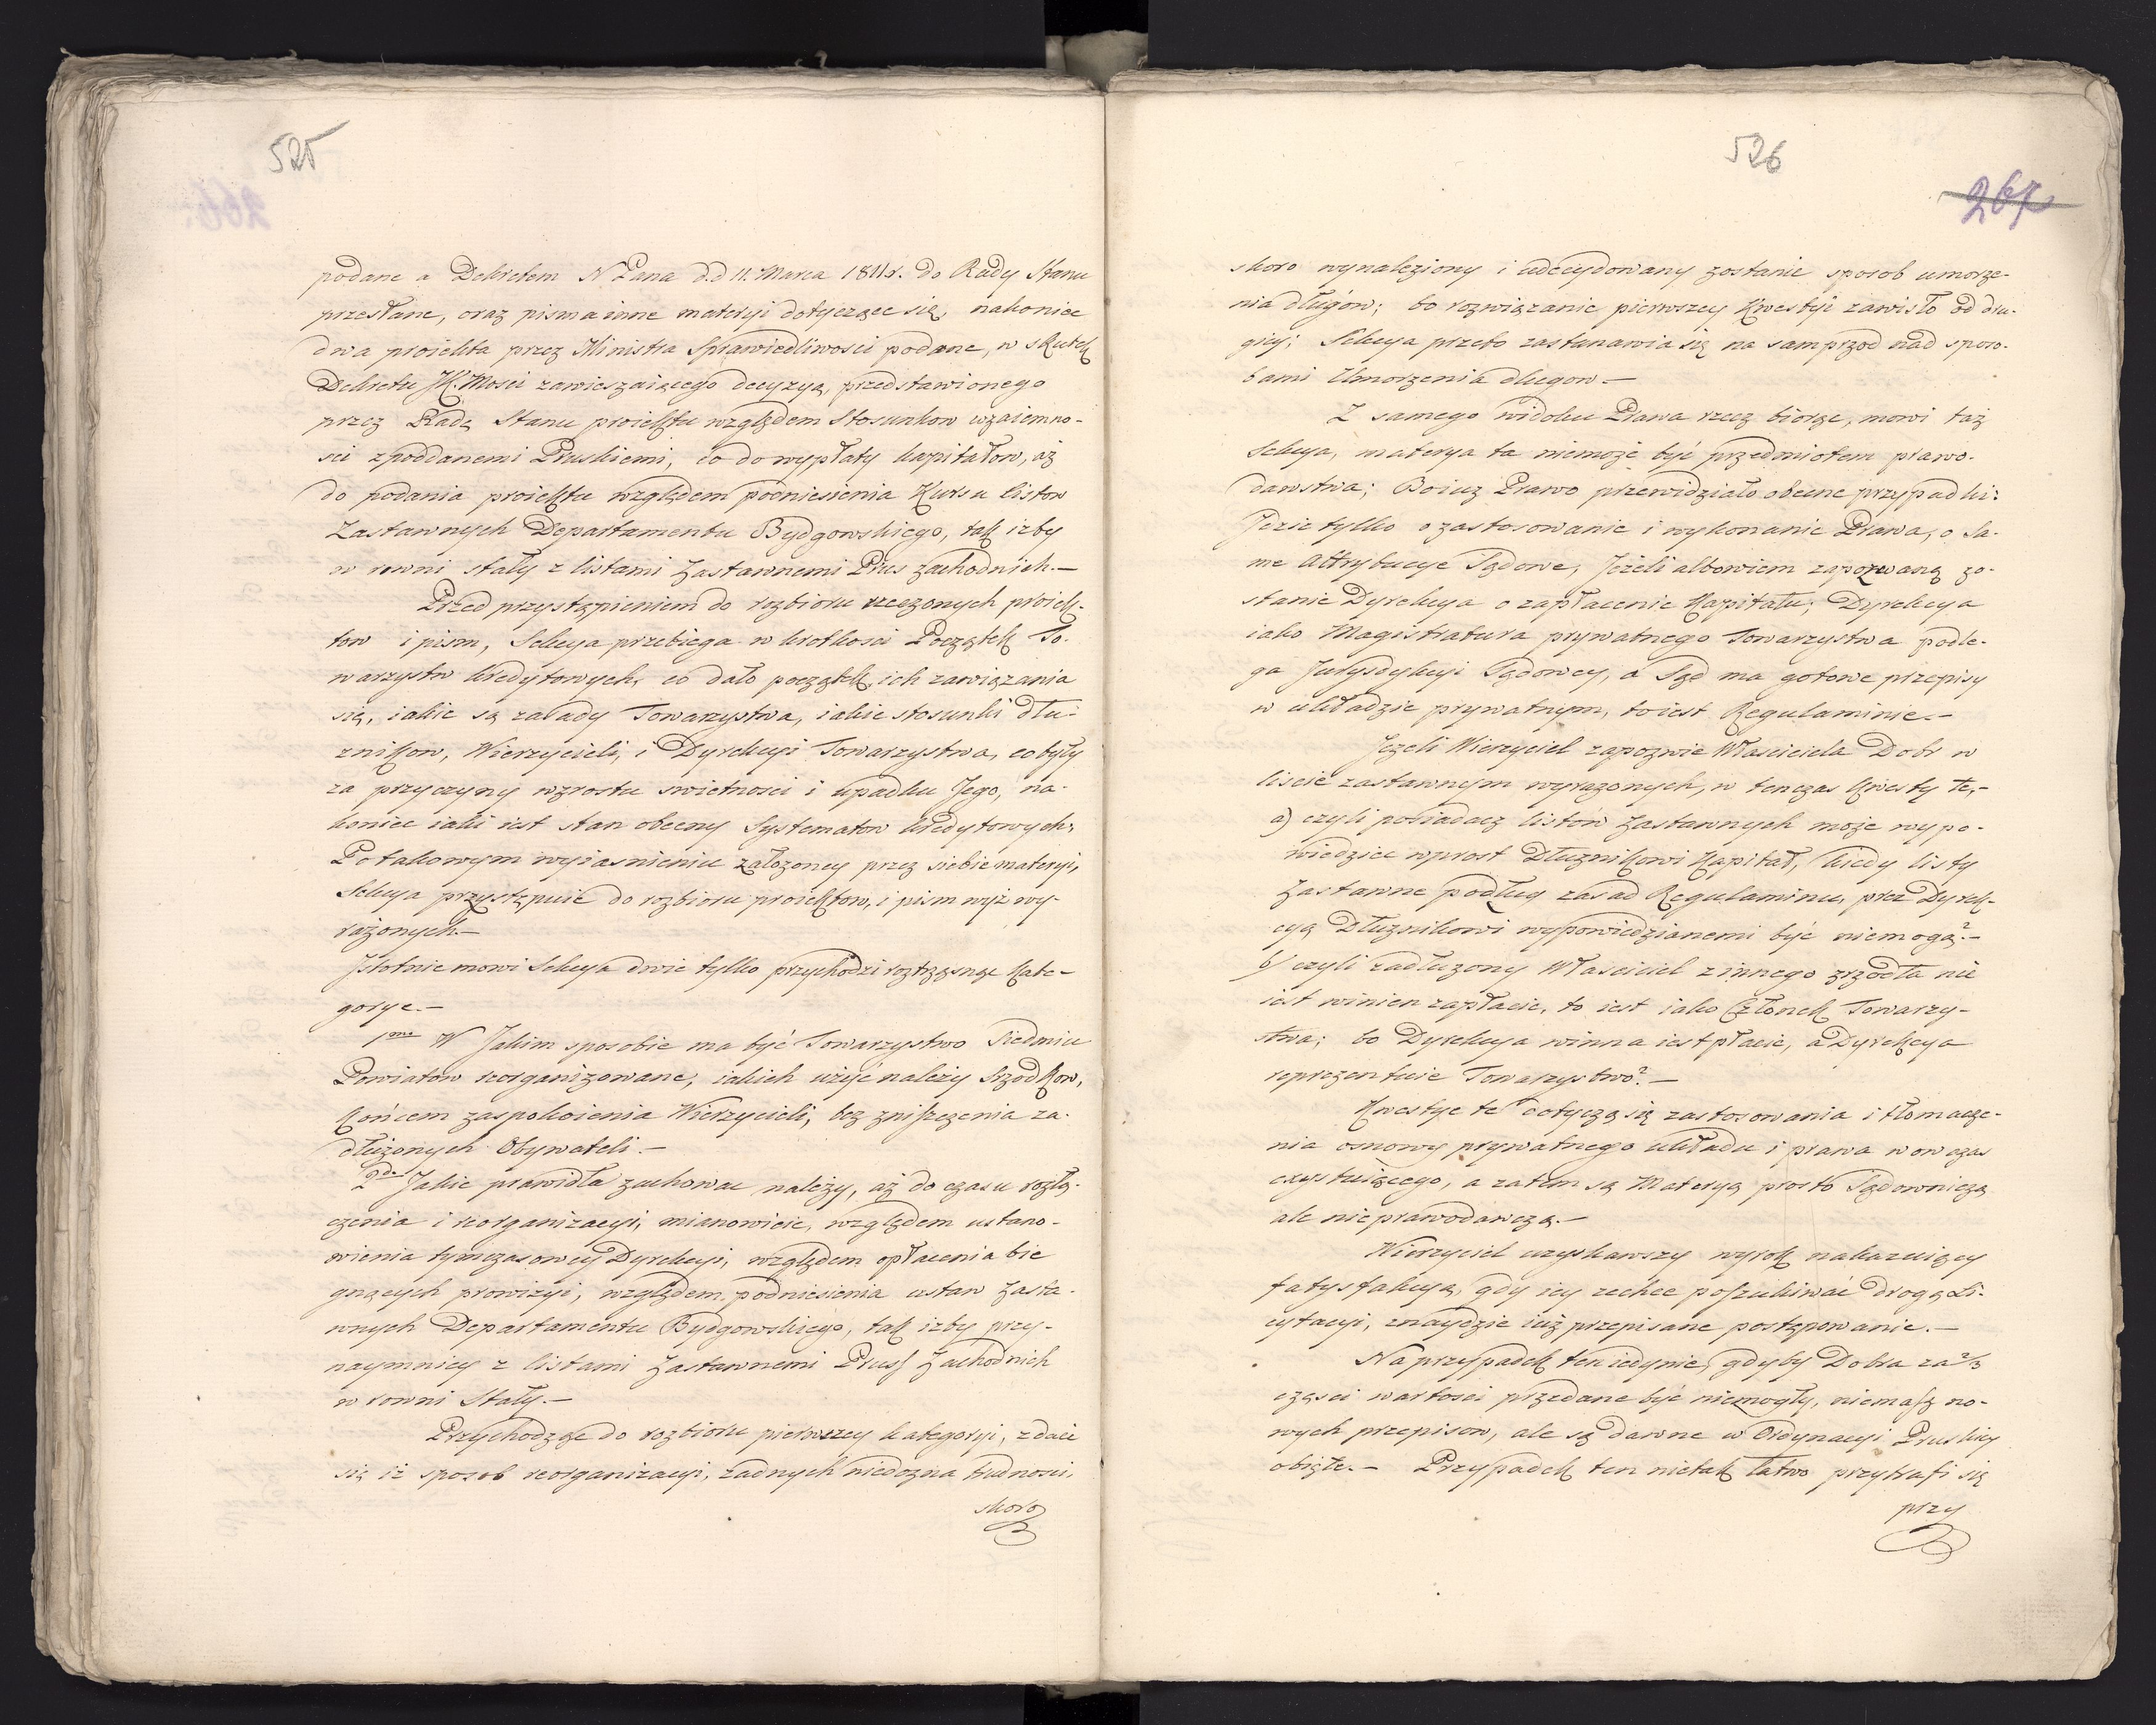 525
podane a Dekretem N Pana d.d 11. Marca 1811r. do Rady Stanu
przesłane, oraz pisma inne materyi dotyczące się, nakoniec
dwa proiekta przez Ministra Sprawiedliwosci podane, w skutek
Dekretu JK. Mosci zawieszaiącego decyzyą, przedstawionego
przez Radę Stanu proiektu względem Stosunkow wzaiemno-
sci z poddanemi Pruskiemi, co do wypłaty kapitałow, aż
do podania proiektu względem podniesienia Kursu listow
Zastawnych Departamentu Bydgowskiego, tak izby
w rowni stały z listami Zastawnemi Prus zachodnich.—
Przed przystąpieniem do rozbioru rzeczonych proiek-
tow i pism, Sekcya przebiega w krotkosci Początek To-
warzystw kredytowych, co dało początek ich zawiązania
się, iakie są zasady Towarzystwa, iakie stosunki dłu-
znikow, Wierzycieli, i Dyrekcyi Towarzystwa, co były
za przyczyny wzrostu swietnosci i upadku Jego, na-
koniec iaki iest stan obecny Systematow kredytowych,
Po takowym wyiasnieniu założoney przez siebie materyi,
Sekcya przystępuie do rozbioru proiektow, i pism wyż wy-
rażonych.—
Istotnie mowi Sekcya dwie tylko przychodzi roztrząsnąc Kate-
gorye.—
1mo W Jakim sposobie ma być Towarzystwo Siedmiu
Powiatow reorganizowane, iakich użyć należy srzodkow,
Końcem zaspokoienia Wierzycieli, bez zniszczenia za-
dłużonych Obywateli.—
2do Jakie prawidła zachowac należy, aż do czasu rozłą-
czenia i reorganizacyi, mianowicie, względem ustano-
wienia tymczasowey Dyrekcyi, względem opłacenia bie
gnących prowizyi, względem podniesienia ustaw Zasta-
wnych Departamentu Bydgowskiego, tak izby przy-
naymniey z listami Zastawnemi Pruss Zachodnich
w rowni Stały.—
Przychodząc do rozbioru pierwszey kategoryi, zdaie
się iż sposob reorganizacyi, żadnych niedozna trudnosci,
skoro
526
267
skoro wynaleziony i udecydowany zostanie sposob umorze-
nia długów; bo rozwiązanie pierwszey Kwestyi zawisło od dru-
giey; Sekcya przeto zastanawia się na samprzod nad sposo-
bami Umorzenia dlugow—
Z samego widoku Prawa rzecz biorąc, mowi taż
Sekcya, materya ta niemoże być przedmiotem prawo-
dawstwa; Boiuz Prawo przewidziało obecne przypadki:
Jdzie tylko o zastosowanie i wykonanie Prawa, o Sa-
me Attrybucye Sądowe, Jeżeli albowiem zapozwaną zo-
stanie Dyrekcya o zapłacenie Kapitału; Dyrekcya
iako Magistratura prywatnego Towarzystwa podle-
ga Jurysdykcyi Sądowey, a Sąd ma gotowe przepisy
w układzie prywatnym, to iest Regulaminie.—
Jeżeli Wierzyciel zapozwie Własciciela Dobr w
liscie zastawnym wyrazonych, w tenczas Kwesty te,-
a) czyli posiadacz listów Zastawnych może wypo-
wiedziec wprost Dłużnikowi Kapitał, kiedy listy
Zastawne podług zasad Regulaminu, prez Dyrek-
cyą Dłuznikowi wypowiedzianemi być niemogą?—
b/ czyli zadłużony Własciciel z innego zrzodła nie
iest winien zapłacic, to iest iako Członek Towarzy-
stwa; bo Dyrekcya winna iest płacic, a Dyrekcya
reprezentuie Towarzystwo?—
Kwestye te dotyczą się zastosowania i tłomacze-
nia osnowy prywatnego układu i prawa wowczas
exystuiącego, a zatem są Materyą prosto Sądowniczą
ale nieprawodawczą.—
Wierzyciel uzyskawszy wyrok nakazuiący
satysfakcyą, gdy iey zechce poszukiwać drogą Li-
cytacyi, znaydzie iuż przepisane postępowanie.—
Na przypadek ten iedynie, gdyby Dobra za 2/3
częsci wartosci przedane być niemogły, niemasz no-
wych przepisow, ale są dawne w Ordynacyi Pruskiey
obięte.— Przypadek ten nietak łatwo przytrafi się
przy